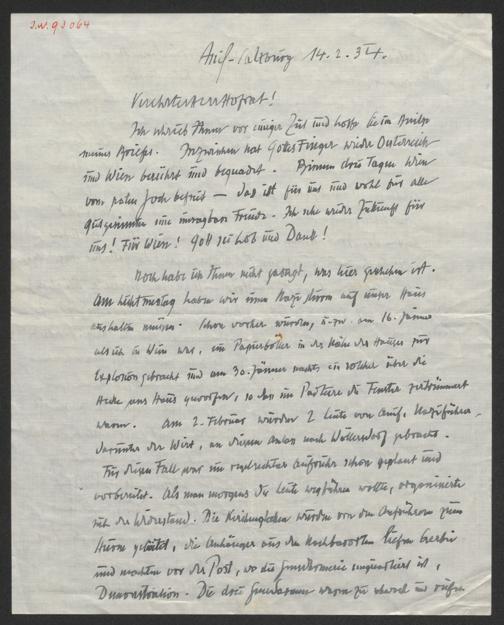 I.N. 93064
Anif-Salzburg 14.2.34.
Verehrtester Hofrat!
Ich schrieb Ihnen vor einiger Zeit und hoffe Sie im Besitze
meines Briefes. Inzwischen hat Gottes Finger wieder Österreich
und Wien berührt und begnadet. Binnen drei Tagen Wien
vom roten Joch befreit — das ist für uns und wohl für alle
Gutgesinnten eine unsagbare Freude. Ich sehe wieder Zukunft für
uns! Für Wien! Gott sei Lob und Dank!
Noch habe ich Ihnen nicht gesagt, was hier geschehen ist.
Am Lichtmesstag haben wir einen Nazi Sturm auf unser Haus
aushalten müssen. Schon vorher wurden, u. zw. am 16. Jänner
als ich in Wien war, ein Papierböller in der Nähe des Hauses zur
Explosion gebracht und am 30. Jänner nachts ein solcher über die
Hecke ans Haus geworfen, so dass im Parterre die Fenster zertrümmert
waren. Am 2. Februar wurden 2 Leute von Anif, Naziführer,
darunter der Wirt, an diesem Anlass nach Wöllersdorf gebracht.
Für diesen Fall war ein regelrechter Aufruhr schon geplant und
vorbereitet. Als man morgens die Leute wegführen wollte, organisierte
sich der Widerstand. Die Kirchenglocken wurden von den Anführern zum
Sturme geläutet, die Anhänger aus den Nachbarorten liefen herbei
und machten vor der Post, wo die Gendarmerie einquartiert ist,
Demonstration. Die drei Gendarmen waren zu schwach und